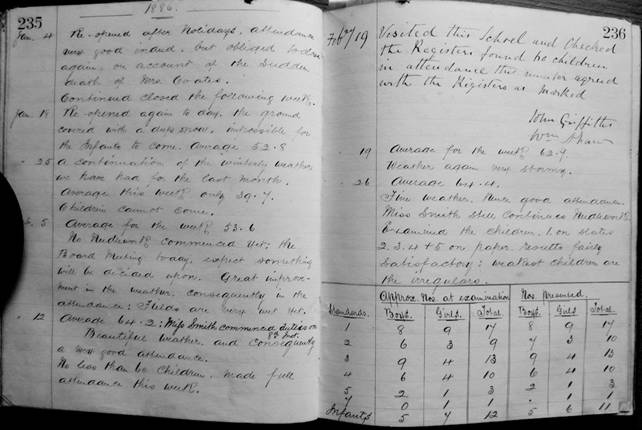 235
1886.
Jan. 4 Re-opened after Holidays, attendance
very good indeed, but obliged to close
again, on account of the sudden
death of Mrs. Coates.
Continued closed the following week.
Jan. 18 Re-opened again to day, the ground
covered with a deep snow, impossible for
the Infants to come. Average 52.8
25 a continuation of the winterly weather
we have had for the last month.
Average this week only 39.7.
Children cannot come.
5 Average for the week 53.6
No Needlework commenced yet; the
Board Meeting today, expect something
will be decided upon. Great improve-
ment in the weather, consequently in the
attendance: Fields are very wet yet.
12 Average 64.2: Miss Smith commenced duties on
8th Inst.
Beautiful weather and consequently
a very good attendance.
No less than 60 children made full
attendance this week.
236
Feby 19 Visited this School and Checked
the Registers found 60 children
in attendance this number agreed
with the Registers as marked
John Griffiths
Wm Shaw
19 Average for the week 62.9.
Weather again very stormy.
26 Average 64.4.
Fine weather. Hence good attendance.
Miss Smith still continues Needlework.
Examined the children, 1 on slates
2. 3. 4 + 5 on paper. results fairly
Satisfactory: weakest children are
the irregulars.
Approx. Nos. at examination Nos. Presented.
Standards. Boys. Girls. Total. Boys. Girls. Total.
1 8 9 17 8 9 17
2 6 3 9 7 3 10
3 9 4 13 9 4 13
4 6 4 10 6 4 10
5 2 1 3 2 1 3
7 0 1 1 . 1 1
Infants 5 7 12 5 6 11